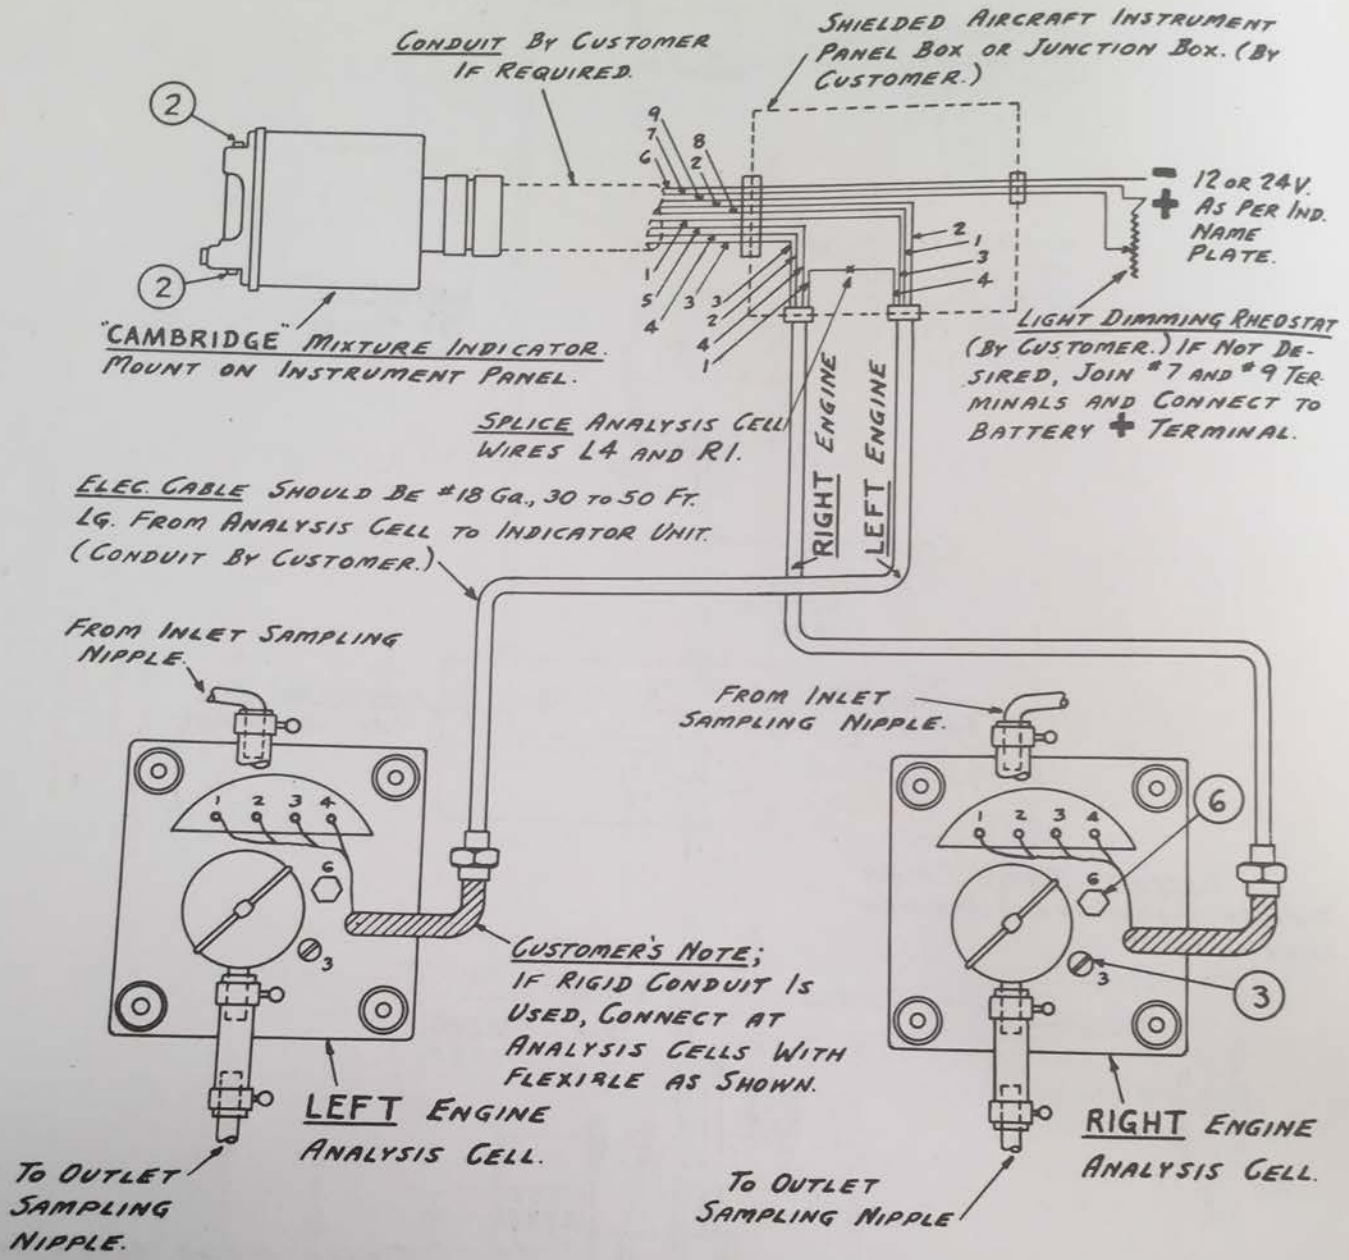 SHIELDED AIRCRAFT INSTRUMENT
PANEL BOX OR JUNCTION BOX. (BY
CUSTOMER.)
CONDUIT BY CUSTOMER
IF REQUIRED.
2
2
9
7
6
8
2
1
5
4
3
3
2
4
1
2
1
3
4
- 12 OR 24 V.
+ AS PER IND.
NAME
PLATE.
"CAMBRIDGE" MIXTURE INDICATOR.
MOUNT ON INSTRUMENT PANEL.
LIGHT DIMMING RHEOSTAT
(BY CUSTOMER.) IF NOT DE-
SIRED, JOIN #7 AND #9 TER-
MINALS AND CONNECT TO
BATTERY + TERMINAL.
SPLICE ANALYSIS CELL
WIRES L4 AND R1.
RIGHT ENGINE
LEFT ENGINE
ELEC. CABLE SHOULD BE #18 GA., 30 TO 50 FT.
LG. FROM ANALYSIS CELL TO INDICATOR UNIT.
(CONDUIT BY CUSTOMER.)
FROM INLET SAMPLING
NIPPLE.
FROM INLET
SAMPLING NIPPLE.
1 2 3 4
6
3
1 2 3 4
6
3
6
3
CUSTOMER'S NOTE;
IF RIGID CONDUIT IS
USED, CONNECT AT
ANALYSIS CELLS WITH
FLEXIBLE AS SHOWN.
LEFT ENGINE
ANALYSIS CELL.
RIGHT ENGINE
ANALYSIS CELL.
TO OUTLET
SAMPLING
NIPPLE.
TO OUTLET
SAMPLING NIPPLE